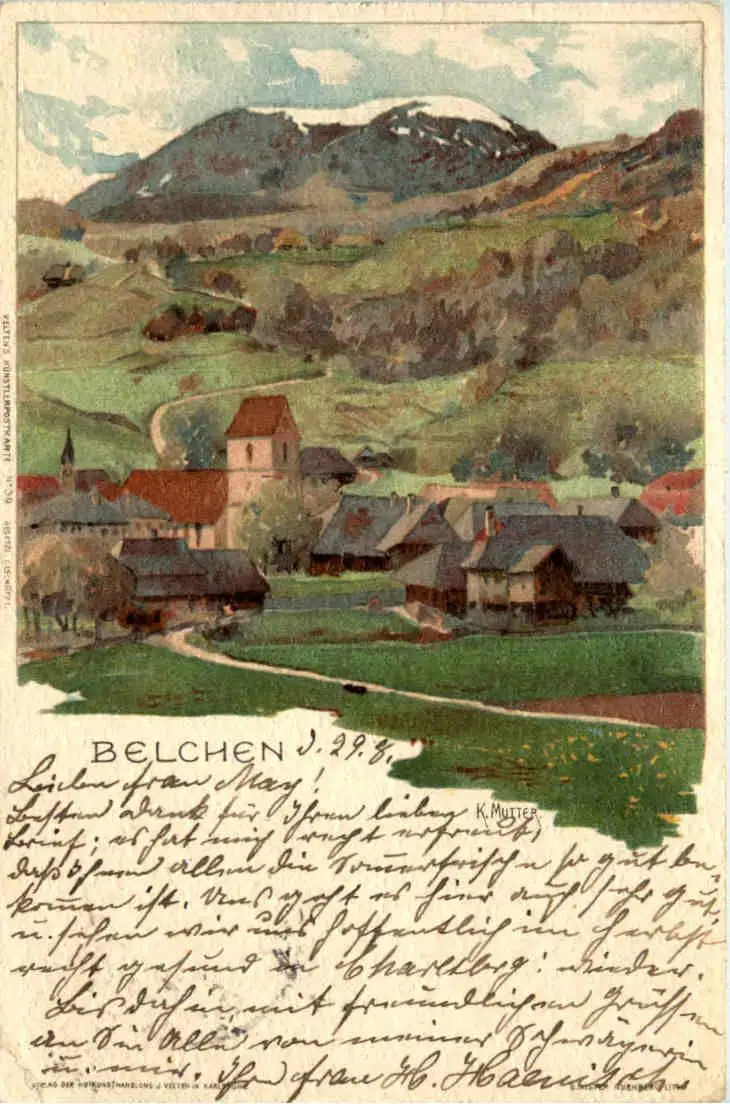 VELTEN'S KÜNSTLERPOSTKARTE Nº 39
BELCHEN d. 29.8.
K. MUTTER.
Frau May!
Besten Dank für Ihren lieben
Brief; es hat mich recht erfreut,
daß Ihnen allen die Somerfrische so gut be-
komen ist. Uns geht es hier auch sehr gut,
u. sehen wir uns hoffentlich im Herbst
recht gesund in Charltbg! wieder.
Bis dahin mit freundlichen Grüssen
an Sie Alle von meiner Schwägerin
u. mir. Ihre Frau H.
VERLAG DER HOFKUNSTHANDLUNG J. VELTEN IN KARLSRUHE